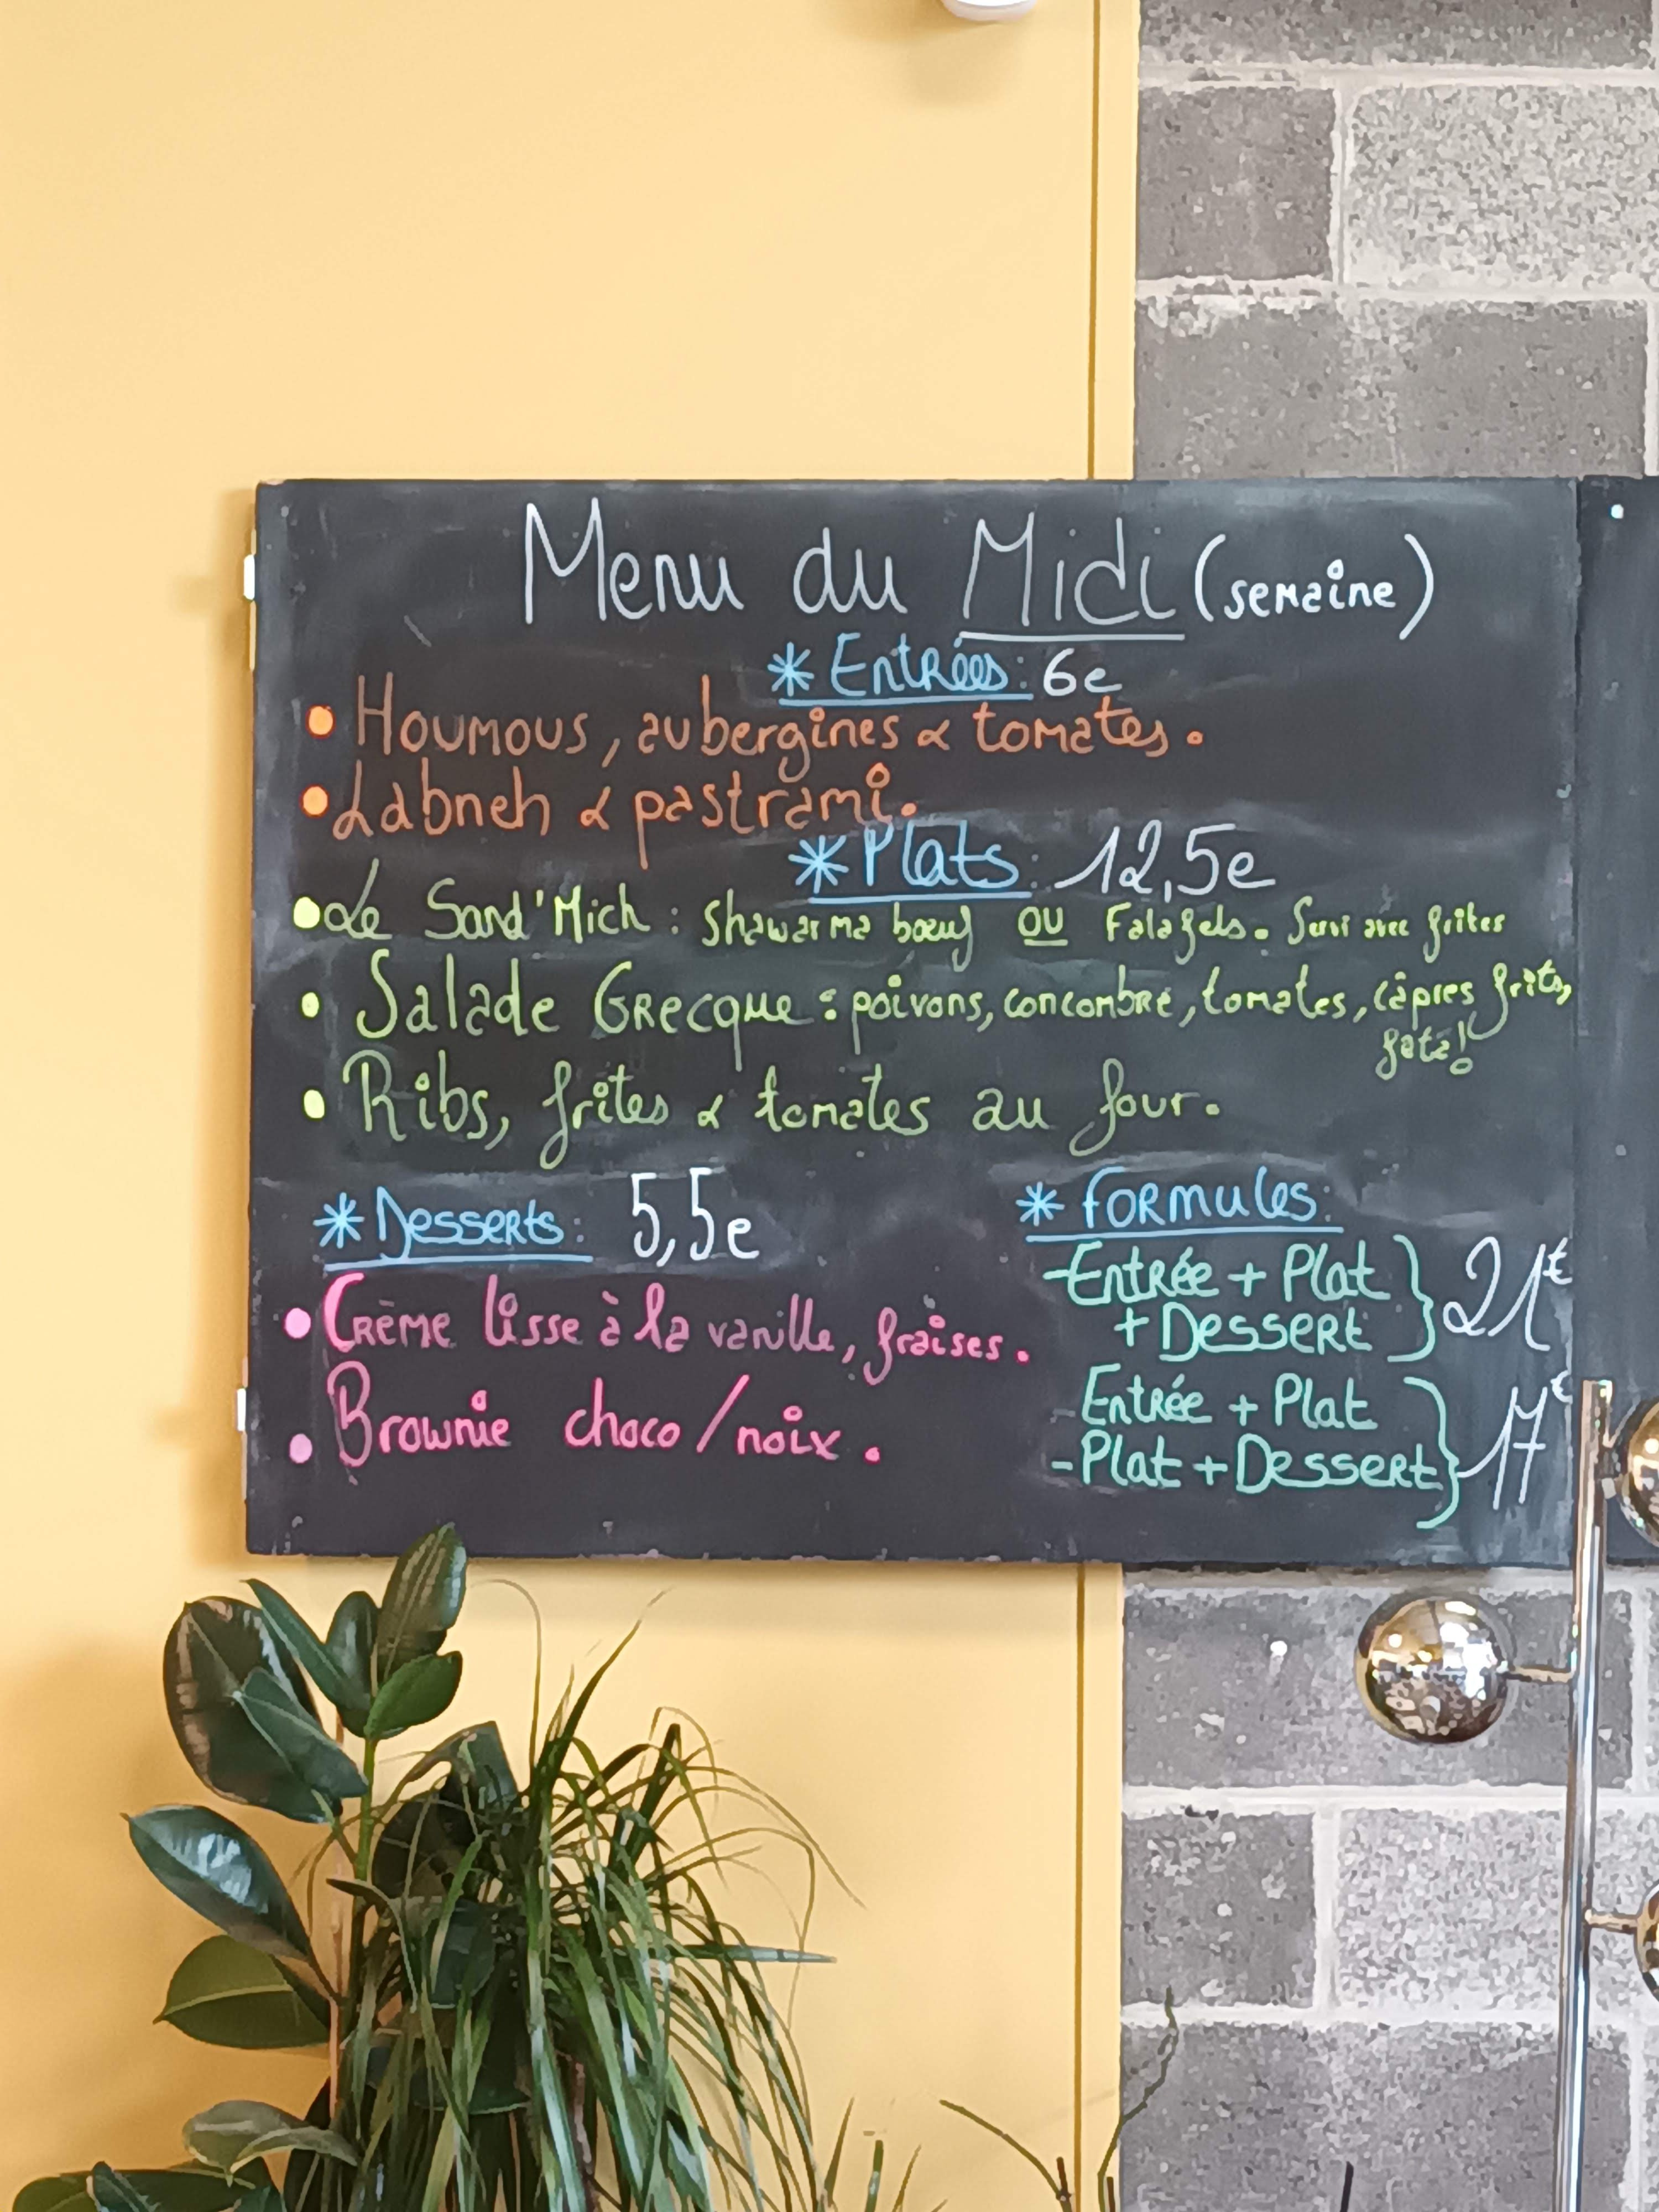 Menu du Midi (semaine)
* Entrées : 6e
• Houmous, aubergines & tomates.
• Labneh & pastrami.
* Plats : 12,5e
• Le Sand'Mich : Shawarma bœuf OU Falafels. Servi avec frites
• Salade Grecque : poivrons, concombre, tomates, câpres frits,
feta!
• Ribs, frites & tomates au four.
* Desserts : 5,5e
• Crème lisse à la vanille, fraises.
• Brownie choco/noix.
* Formules :
- Entrée + Plat
+ Dessert } 21€
- Entrée + Plat
- Plat + Dessert } 17€